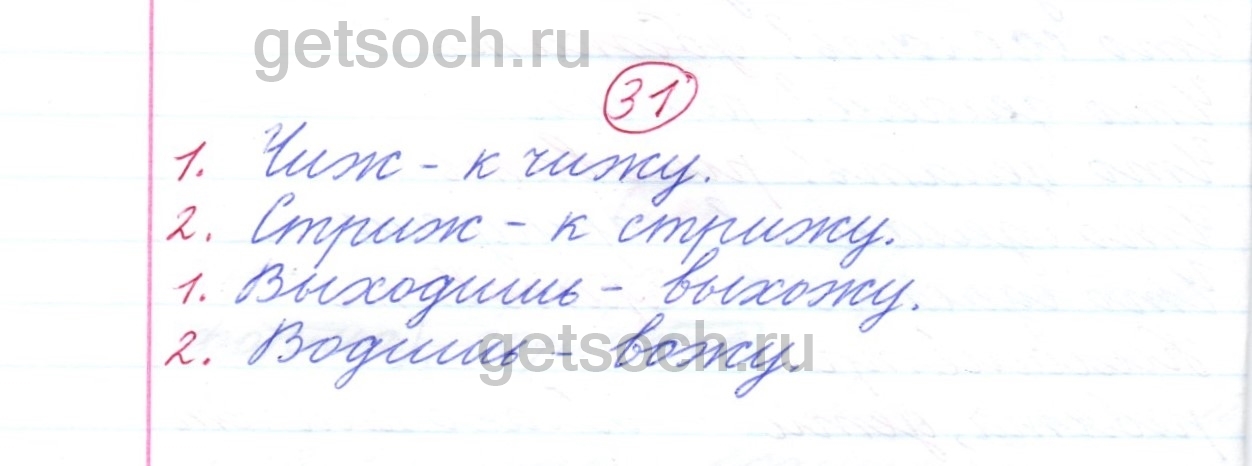 getsoch.ru
31
1. Чиж - к чижу.
2. Стриж - к стрижу.
1. Выходишь - выхожу.
2. Водишь - вожу.
getsoch.ru